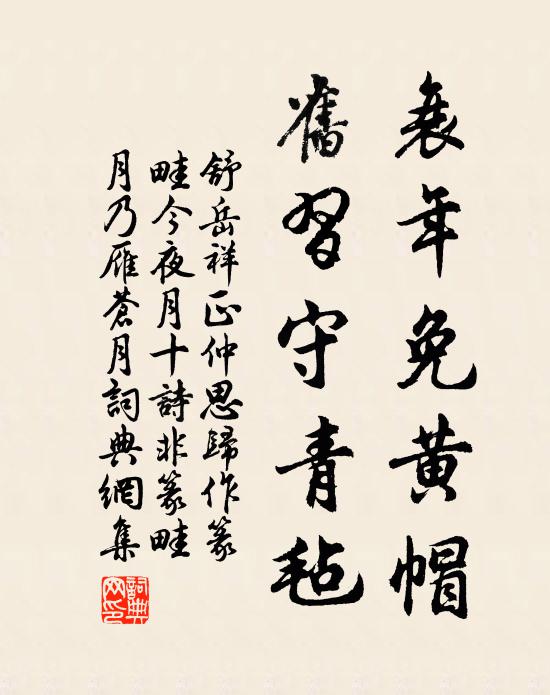 衰年免黄帽
舊習守青毡
舒岳祥正仲思歸作篆
畦今夜月十詩非篆畦
月乃雁蒼月詞典網集
詞典網印